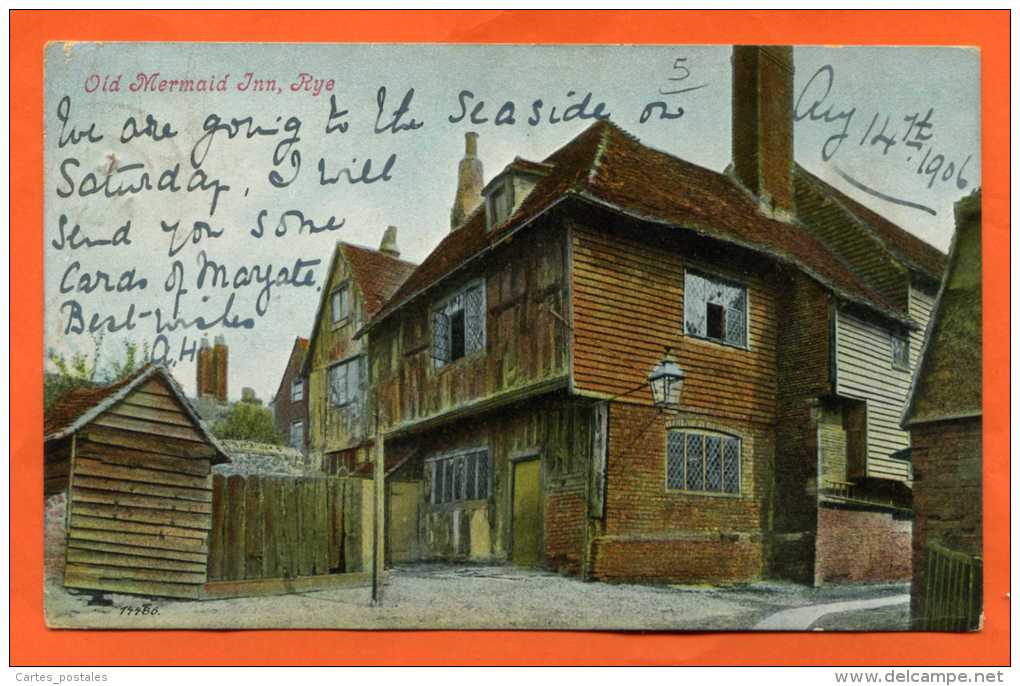 Old Mermaid Inn, Rye
5
Aug 14th. 1906
We are going to the Seaside on
Saturday, I will
Send you some
Cards of Margate.
Best-wishes
A.H
Cartes_postales
www.delcampe.net